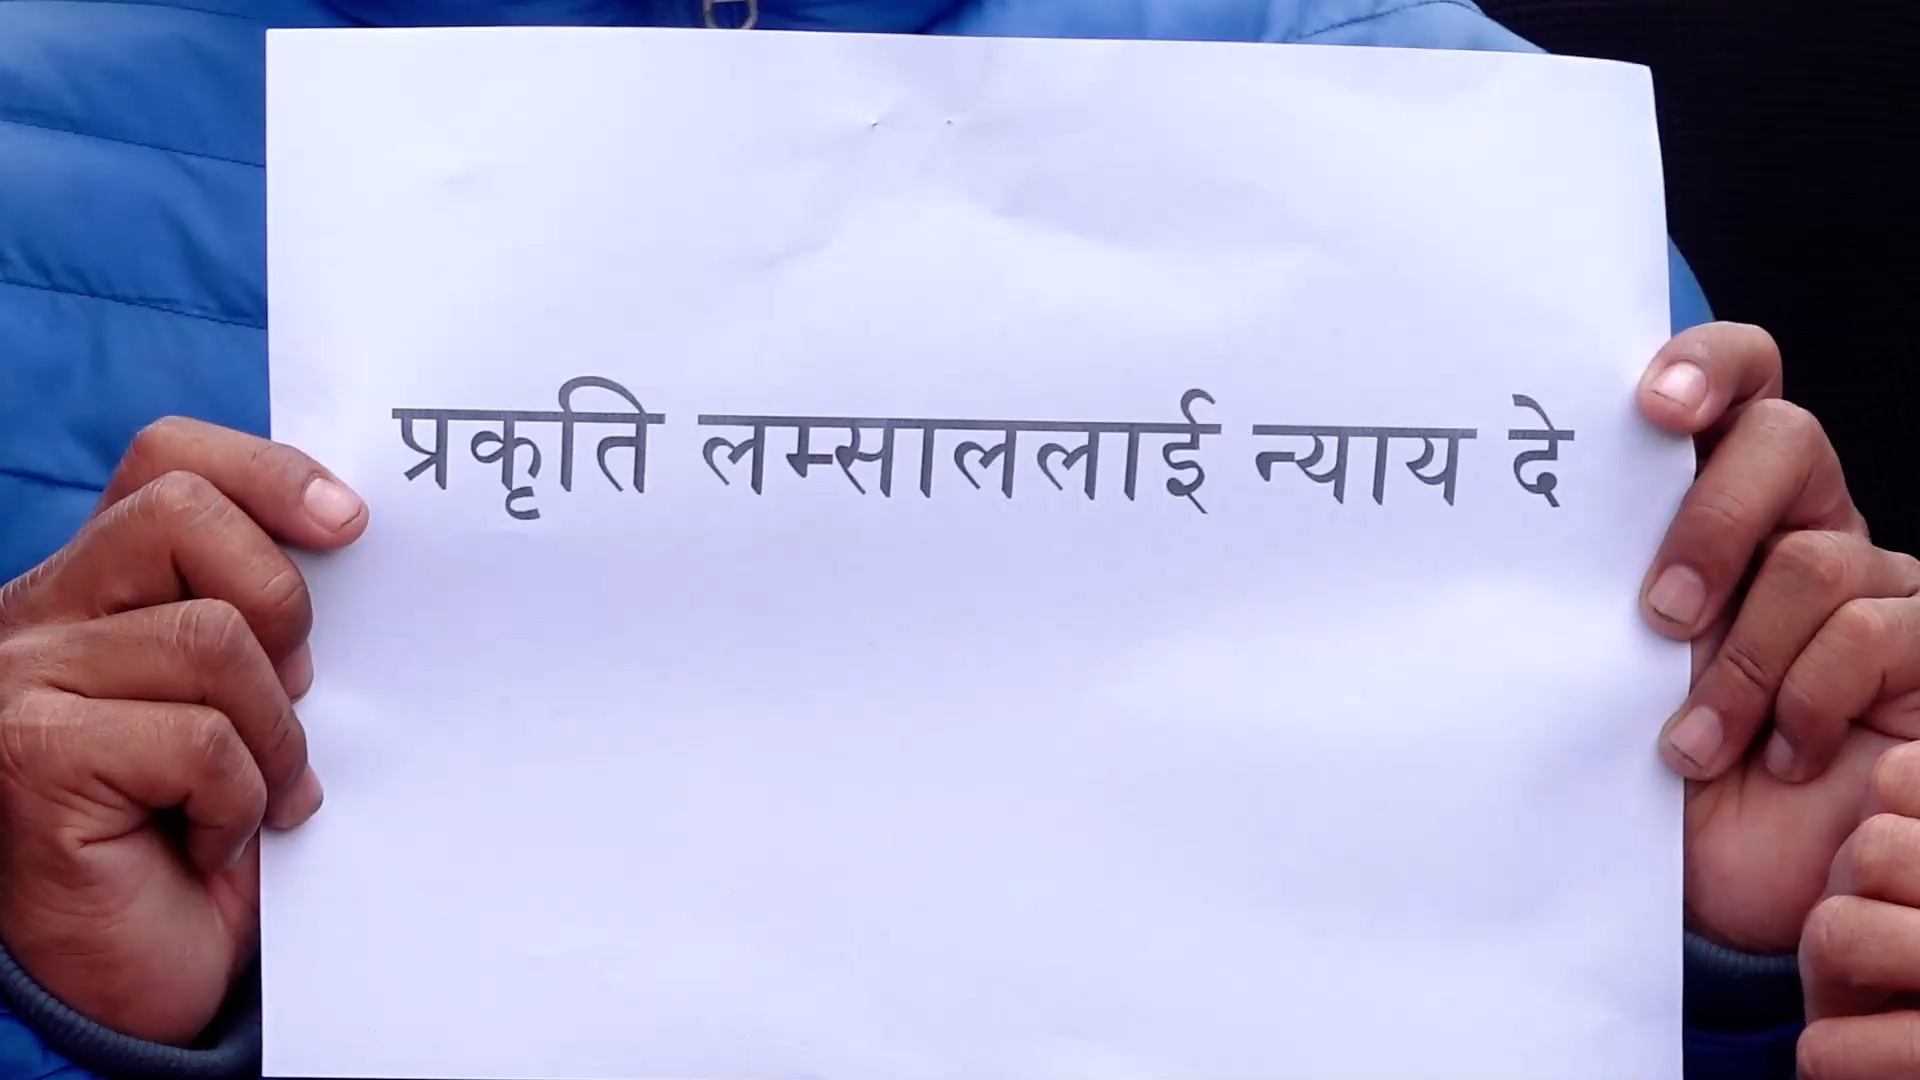 प्रकृति लम्साललाई न्याय दे